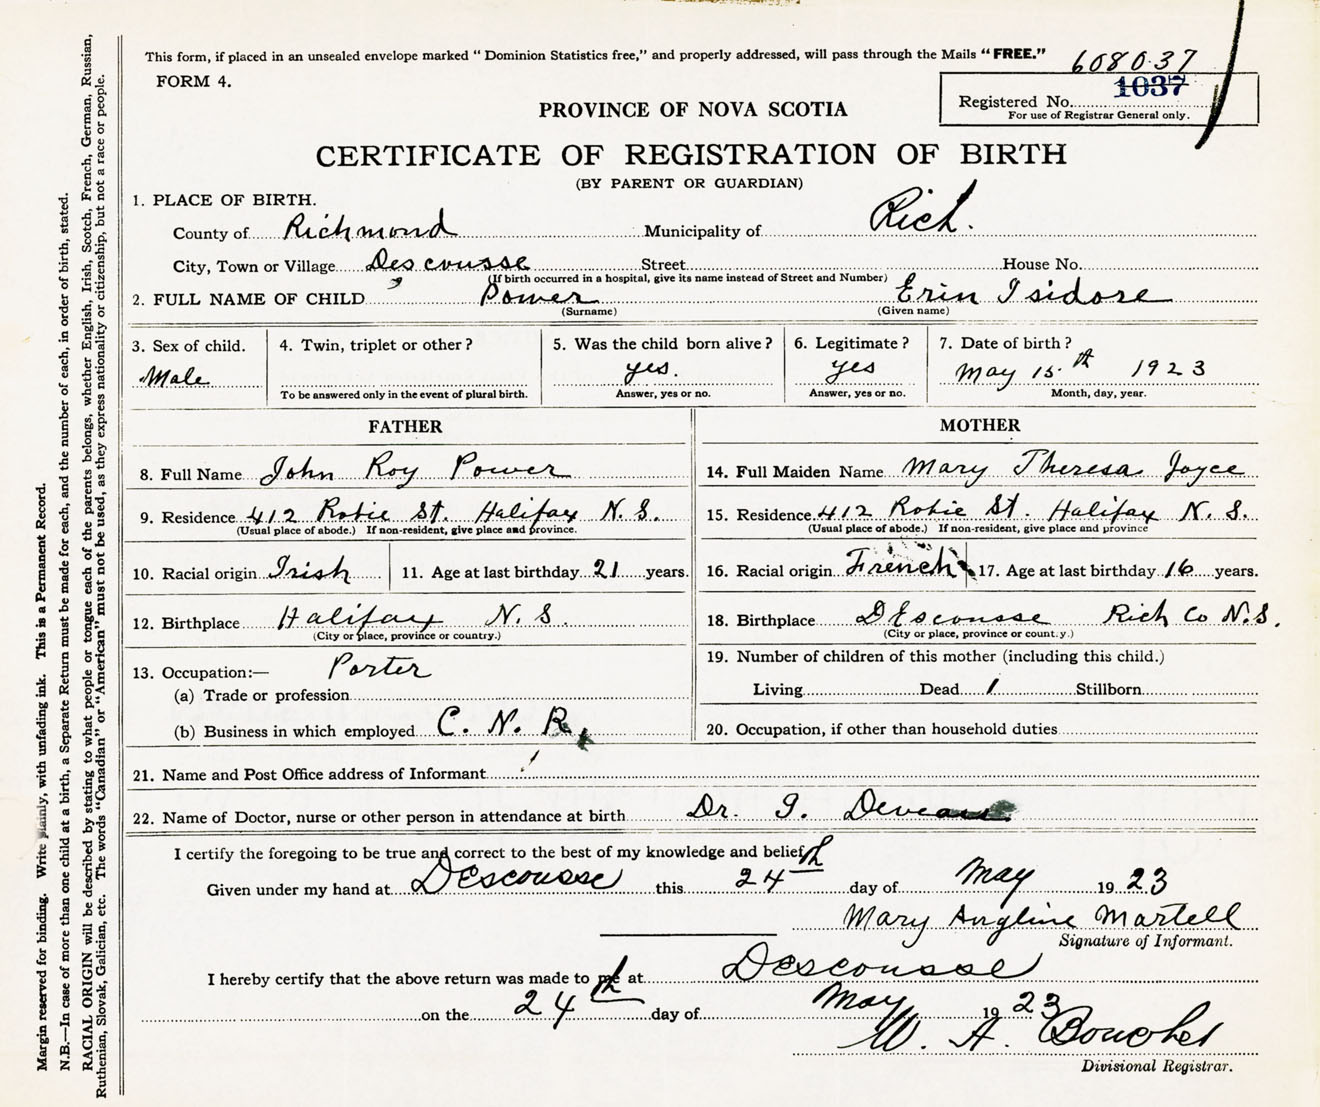 This form, if placed in an unsealed envelope marked “ Dominion Statistics free,” and properly addressed, will pass through the Mails “FREE.”
608037
FORM 4.
1037
Registered No.
For use of Registrar General only.
PROVINCE OF NOVA SCOTIA
CERTIFICATE OF REGISTRATION OF BIRTH
(BY PARENT OR GUARDIAN)
1. PLACE OF BIRTH.
County of Richmond Municipality of Rich.
City, Town or Village Descousse Street House No.
(If birth occurred in a hospital, give its name instead of Street and Number)
2. FULL NAME OF CHILD Power Erin Isidore
(Surname) (Given name)
3. Sex of child. 4. Twin, triplet or other? 5. Was the child born alive? 6. Legitimate? 7. Date of birth?
Male yes. yes May 15th 1923
To be answered only in the event of plural birth. Answer, yes or no. Answer, yes or no. Month, day, year.
FATHER
8. Full Name John Roy Power
9. Residence 412 Robie St. Halifax N. S.
(Usual place of abode.) If non-resident, give place and province.
10. Racial origin Irish 11. Age at last birthday 21 years.
12. Birthplace Halifax N. S.
(City or place, province or country.)
13. Occupation:— Porter
(a) Trade or profession
(b) Business in which employed C. N. R.
MOTHER
14. Full Maiden Name Mary Theresa Joyce
15. Residence 412 Robie St. Halifax N. S.
(Usual place of abode.) If non-resident, give place and province
16. Racial origin French 17. Age at last birthday 16 years.
18. Birthplace DEscousse Rich Co N.S.
(City or place, province or country.)
19. Number of children of this mother (including this child.)
Living Dead 1 Stillborn
20. Occupation, if other than household duties
21. Name and Post Office address of Informant
22. Name of Doctor, nurse or other person in attendance at birth Dr. I. Deveau
I certify the foregoing to be true and correct to the best of my knowledge and belief.
Given under my hand at Descousse this 24th day of May 1923
Mary Angline Martell
Signature of Informant.
I hereby certify that the above return was made to me at Descousse
on the 24th day of May 1923
W. A. Boucher
Divisional Registrar.
Margin reserved for binding. Write plainly, with unfading ink. This is a Permanent Record.
N.B.—In case of more than one child at a birth, a Separate Return must be made for each, and the number of each, in order of birth, stated.
RACIAL ORIGIN will be described by stating to what people or tongue each of the parents belongs, whether English, Irish, Scotch, French, German, Russian,
Ruthenian, Slovak, Galician, etc. The words “Canadian” or “American” must not be used, as they express nationality or citizenship, but not a race or people.